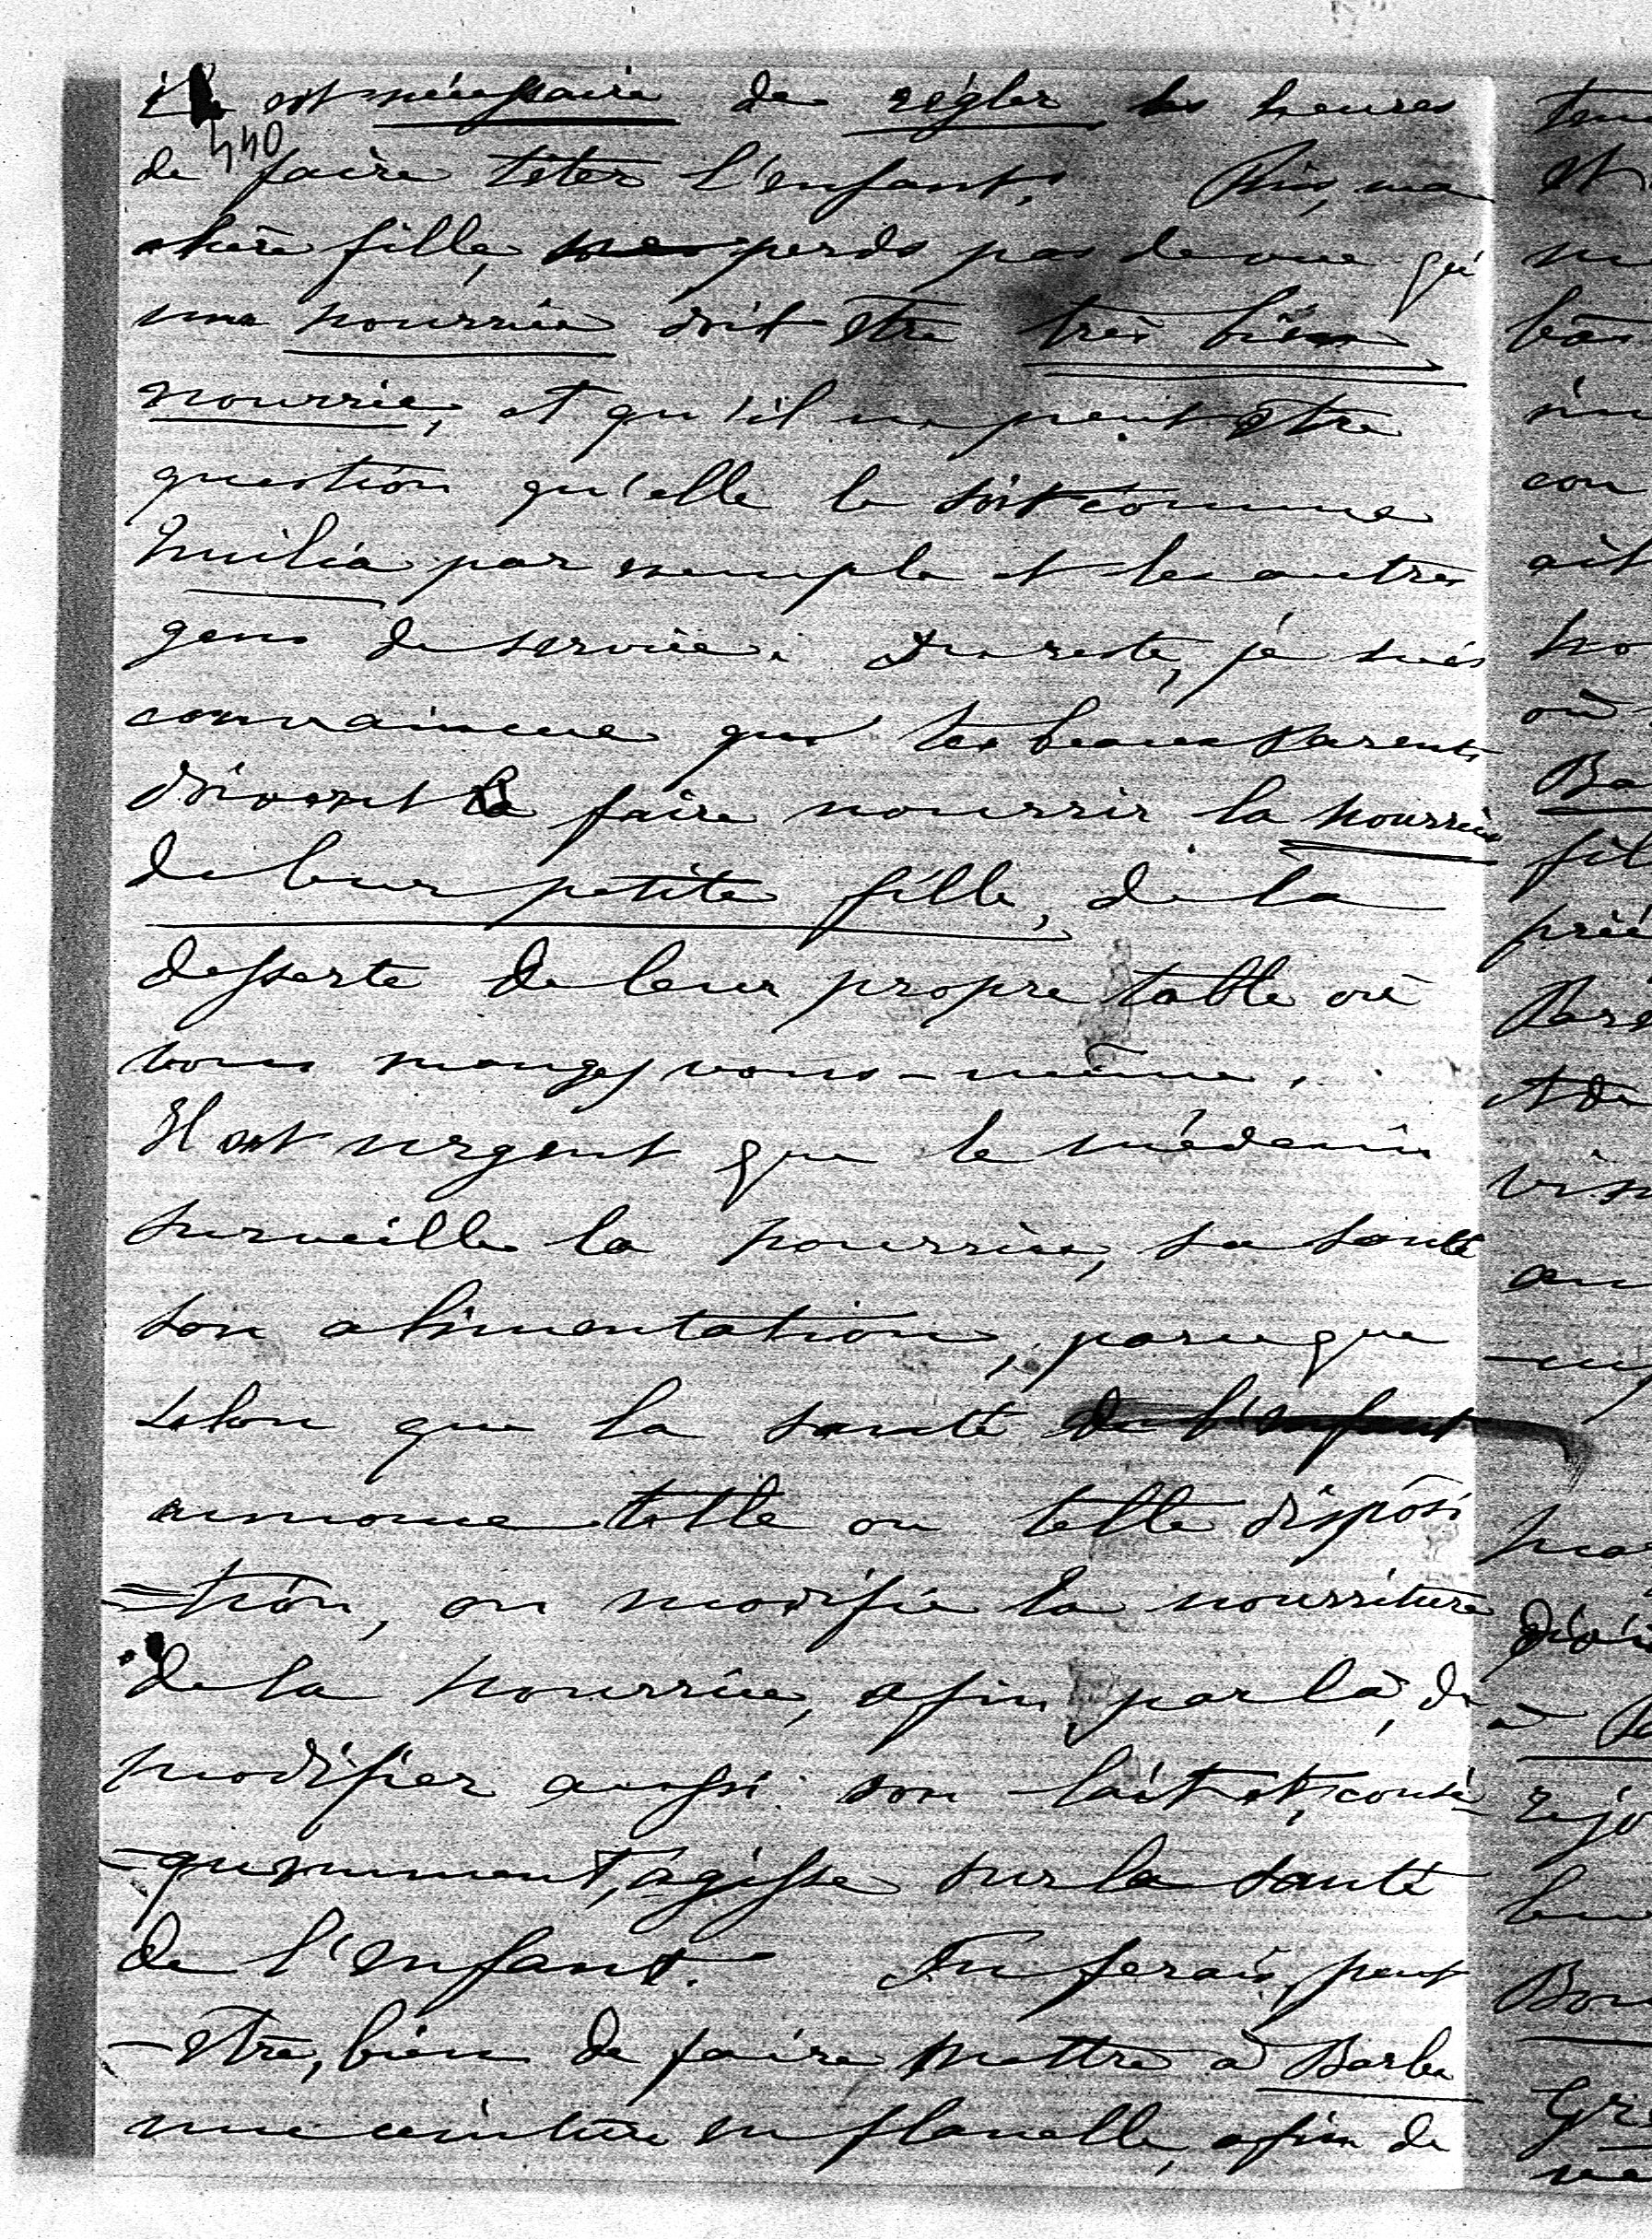 il est nécessaire de régler les heures
440
de faire têter l'enfant. Puis, ma
chère fille, ne perds pas de vue qu'
une nourrice doit être très bien
nourrie, et qu'il ne peut être
question qu'elle le soit comme
Emilia par exemple et les autres
gens de service. Du reste, je suis
convaincue que tes beaux parents
doivent faire nourrir la nourrice
de leur petite fille, de la
desserte de leur propre table où
vous mangez vous-même.
Il est urgent que le médecin
surveille la nourrice, sa santé
son alimentation, parceque
selon que la santé de l'enfant
annonce telle ou telle disposi
=tion, on modifie la nourriture
de la nourrice, afin, par là, de
modifier aussi son lait et, consé-
-quemment, agisse sur la santé
de l'enfant. Tu ferais, peut
-être, bien de faire mettre à Barbe
une ceinture en flanelle, afin de